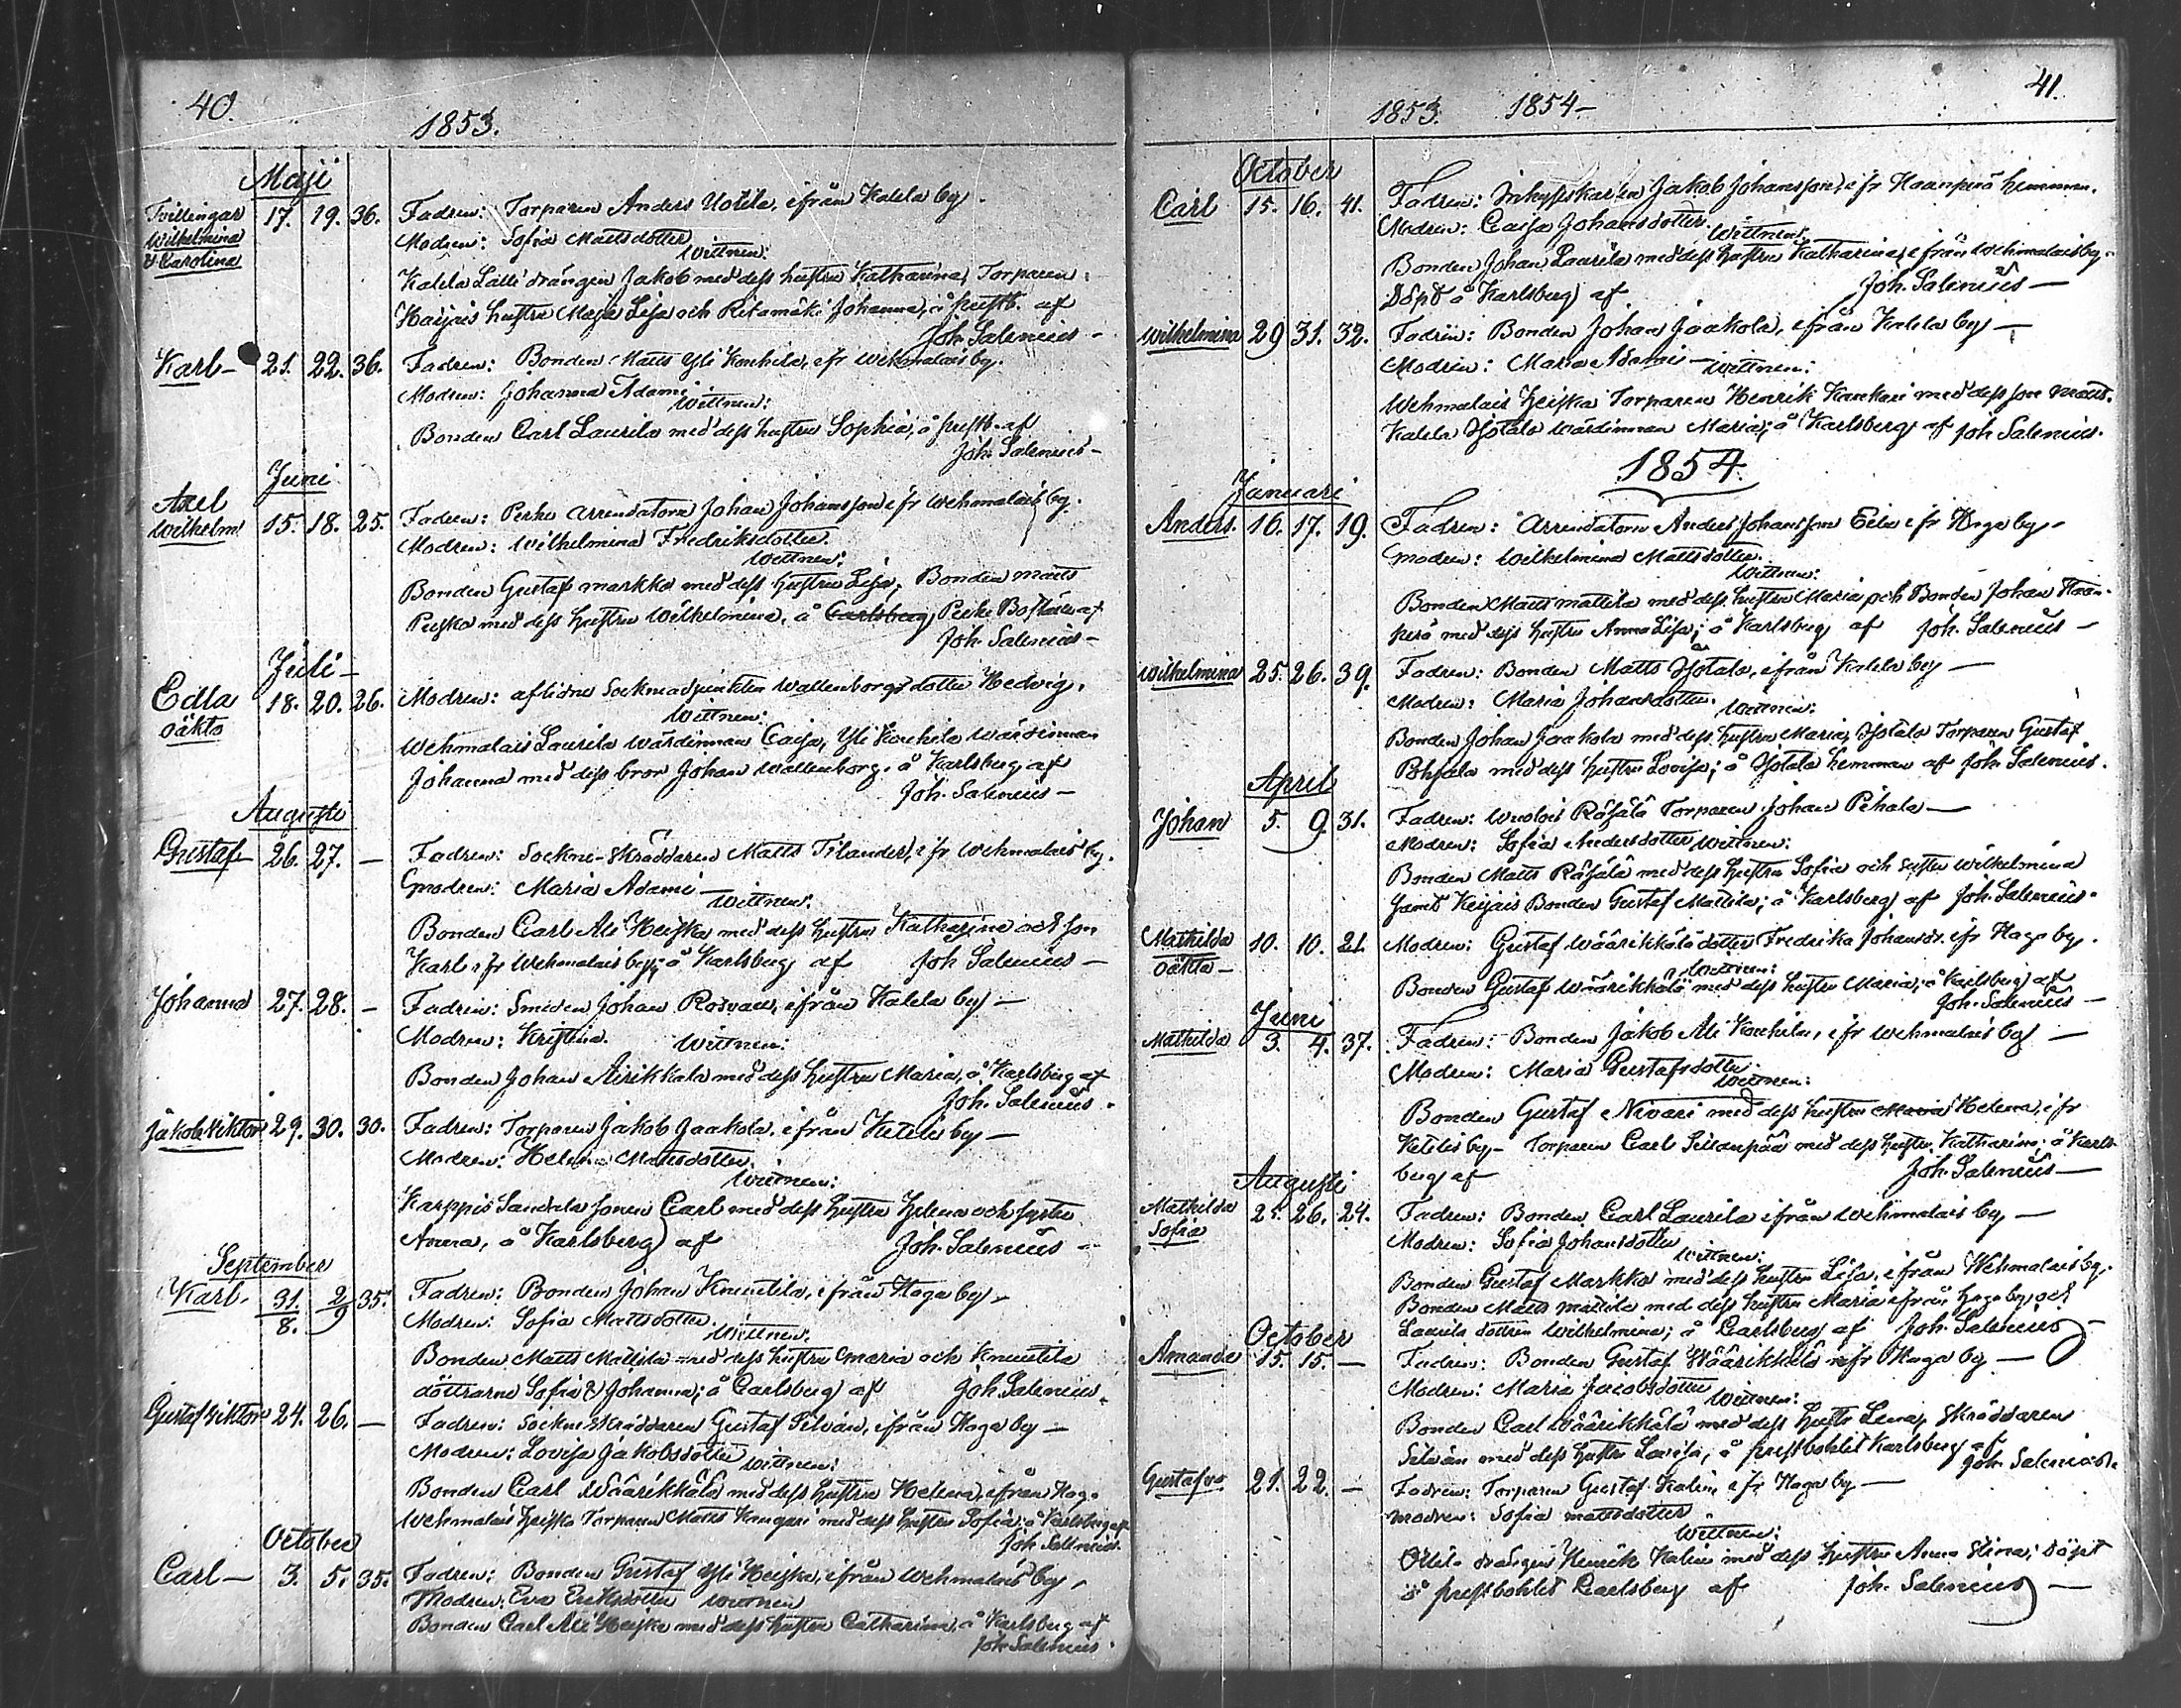 40.
1853.
Maji
Tvillingar Wilhelmina & Karolina 17. 19. 36. Fadren: Torparen Anders Uotila, ifrån Kalela by.
Modren: Sofia Mattsdotter
Wittnen:
Kalela Lalli drängen Jakob med dess hustru Katharina, Torparen
Haijais hustru Maja Lisa och Ritamäki Johanna, i prestb. af
Joh. Salenius –
Karl – 21. 22. 36. Fadren: Bonden Matts Yli Konkela, ifr Wehmalais by.
Modren: Johanna Adami
Wittnen:
Bonden Carl Laurila med dess hustru Sophia, å prestb. af
Joh. Salenius –
Juni
Axel Wilhelm 15. 18. 25. Fadren: Perho arrendatorn Johan Johansson ifr Wehmalais by.
Modren: Wilhelmina Fredriksdotter
Wittnen:
Bonden Gustaf Markko med dess hustru Lisa, Bonden Matts
med dess hustru Wilhelmina, å Carlsberg, af
Joh. Salenius –
Juli –
Edla oäkta 18. 20. 26. Modren: aflidne Wallenborgs dotter Hedvig.
Wittnen:
Wehmalais Laurila wärdinnan Caisa, Yli Konkila wärdinnan
Johanna med dess bror Johan Wallenborg. å Karlsberg af
Joh. Salenius –
Augusti
Gustaf 26. 27. – Fadren: Sockne-skräddaren Matts Tilander, ifr Wehmalais by.
Modren: Maria Adami –
Wittnen:
Bonden Carl Ali Heiska med dess hustru Katharina och son
Karl ifr Wehmalais by; å Karlsberg af Joh Salenius –
Johanna 27. 28. – Fadren: Smeden Johan Rosvall, ifrån Kalela by –
Modren: Kristina. Wittnen:
Bonden Johan Airikkala med dess hustru Maria, å Karlsberg af
Joh. Salenius.
Jakob Viktor 29. 30. 30. Fadren: Torparen Jakob Jaakola, ifrån Ketelis by –
Modren: Helena Mattsdotter.
Wittnen:
Karppis Sandela sonen Carl med dess hustru Helena och syster
Anna, å Karlsberg af Joh. Salenius –
September
Karl. 31/8. 2/9 35. Fadren: Bonden Johan Knuutila, ifrån Haga by –
Modren: Sofia Mattsdotter.
Wittnen:
Bonden Matts Mattila med dess hustru Maria och Knuutila
döttrarne Sofia & Johanna; å Carlsberg af Joh. Salenius.
Gustaf Viktor 24. 26. – Fadren: Sockneskräddaren Gustaf Silván, ifrån Haga by –
Modren: Lovisa Jakobsdotter Wittnen:
Bonden Carl Wäärikkälä med dess hustru Helena, ifrån Haga
Wehmalais Heiska Torparen Matts Kangari med dess hustru Sofia; å Karlsberg af
Joh Salenius.
October
Carl – 3. 5. 35. Fadren: Bonden Gustaf Yli Heiska, ifrån Wehmalais by –
Modren: Eva Eriksdotter Wittnen
Bonden Carl Ali Heiska med dess hustru Catharina, å Karlsberg af
Joh Salenius.
41.
1853. 1854 –
October
Carl 15. 16. 41. Fadren: Jakob Johansson, ifr Haanperä hemman.
Modren: Caisa Johansdotter. Wittnen:
Bonden Johan Laurila med dess hustru Katharina, ifrån Wehmalais by –
Döpt å Karlsberg af Joh. Salenius –
Wilhelmina 29 31. 32. Fadren: Bonden Johan Jaakola, ifrån Kalela by –
Modren: Maria Adami – Wittnen:
Wehmalais Heiska Torparen Henrik Kankari med dess son Matts.
Kalela Ojotala wärdinnan Maria; å Karlsberg af Joh Salenius.
1854.
Januari
Anders. 16. 17. 19. Fadren: Arrendatorn Anders Johansson Eela ifr Haga by –
Modren: Wilhelmina Mattsdotter.
Wittnen:
Bonden Matts Mattila med dess hustru Maria och Bonden Johan Haan-
perä med dess hustru Anna Lisa; å Karlsberg af Joh. Salenius –
Wilhelmina 25. 26. 39. Fadren: Bonden Matts Ojotala, ifrån Kalela by –
Modren: Maria Johansdotter. Wittnen:
Bonden Johan Jaakola med dess hustru Maria, Ojotala Torparen Gustaf
Pohjala med dess hustru Lovisa; å Ojotala hemman af Joh Salenius.
April
Johan 5. 9. 31. Fadren: Räfälä Torparen Johan Pihala –
Modren: Sofia Andersdotter Wittnen:
Bonden Matts Räfälä med dess hustru Sofia och syster Wilhelmina
samt Keijais Bonden Gustaf Mattila; å Karlsberg af Joh. Salenius.
Mathilda oäkta – 10. 10. 21. Modren: Gustaf Wäärikkälä dotter Fredrika Johansdr. ifr Haga by.
Wittnen:
Bonden Gustaf Wäärikkälä med dess hustru Maria; å Karlsberg af
Joh. Salenius –
Juni
Mathilda 3. 4. 37. Fadren: Bonden Jakob Ali Konkila, ifr Wehmalais by –
Modren: Maria Gustafsdotter
Wittnen:
Bonden Gustaf Nivari med dess hustru Maria Helena, ifr
Ketelis by – Torparen Carl Sillanpää med dess hustru Katharina; å Karls-
berg af Joh. Salenius –
Augusti
Mathilda Sofia 25. 26. 24. Fadren: Bonden Carl Laurila ifrån Wehmalais by –
Modren: Sofia Johansdotter
Wittnen:
Bonden Gustaf Markko med dess hustru Lisa, ifrån Wehmalais by.
Bonden Matts Mattila med dess hustru Maria ifrån Haga by, och
Laurila dottren Wilhelmina; å Carlsberg af Joh. Salenius –
October
Amanda 15. 15. – Fadren: Bonden Gustaf Wäärikkälä ifr Haga by –
Modren: Maria Jacobsdotter Wittnen:
Bonden Carl Wäärikkälä med dess hustru Lena, Skräddaren
Silván med dess hustru Lovisa, å prestbohlet Karlsberg af
Joh. Salenius
Gustaf 21. 22. – Fadren: Torparen Gustaf Kalin, ifr Haga by –
Modren: Sofia Mattsdotter
Wittnen:
drängen Henrik Kalin med dess hustru Anna Stina; döpt
å prestbohlet Carlsberg af Joh. Salenius –